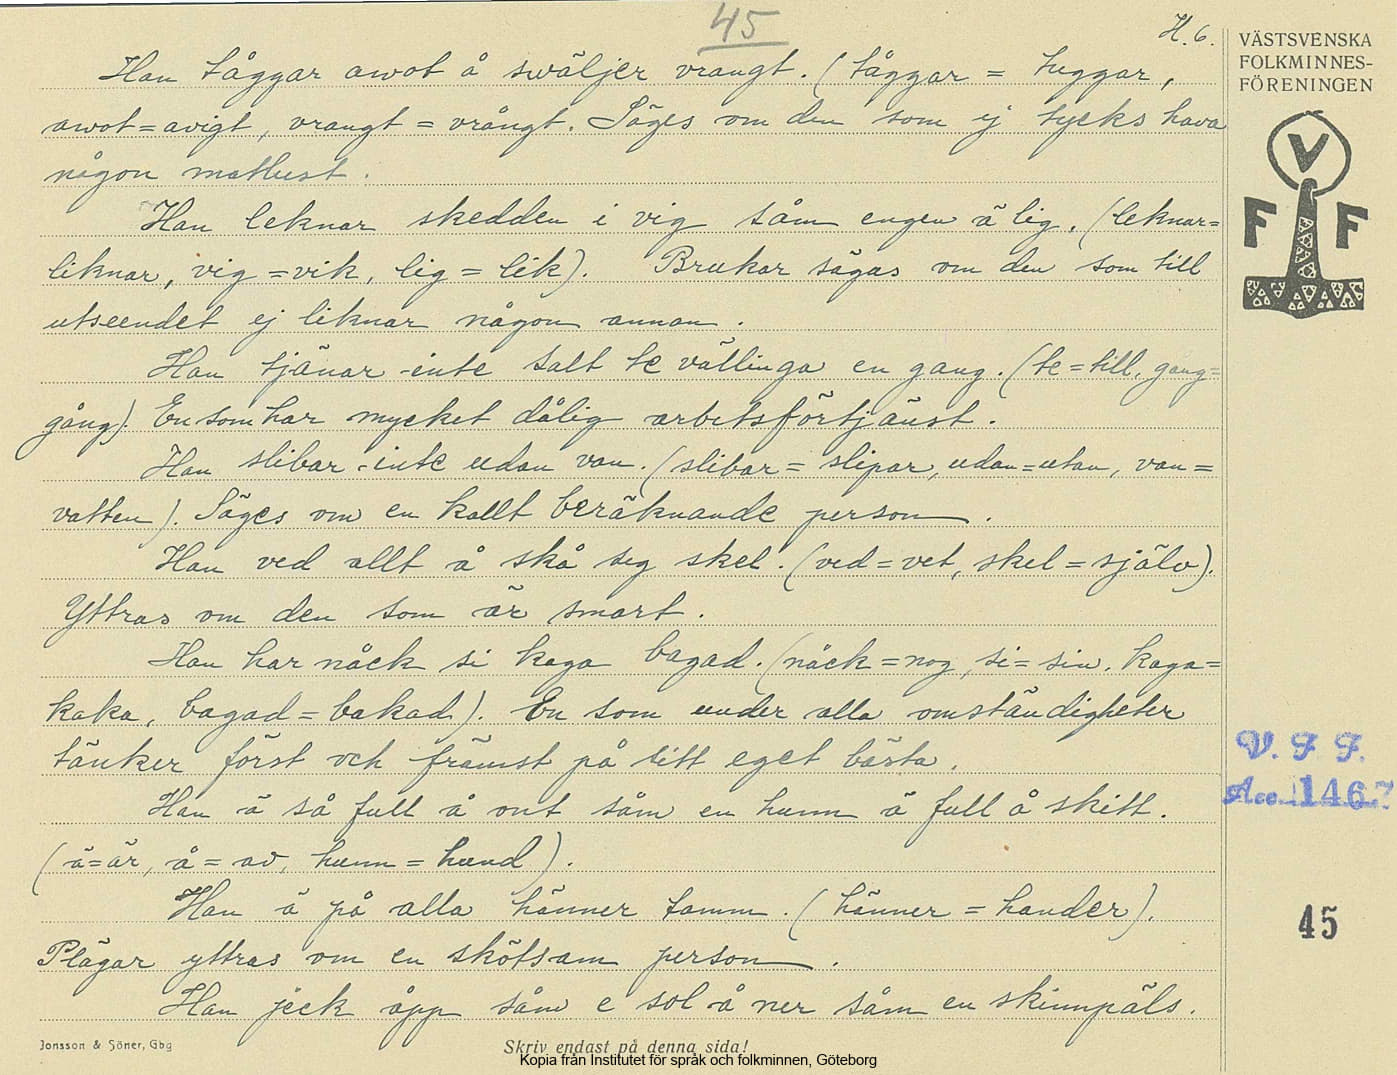 45
H. 6.
Han tåggar awot å swäljer vrangt. (tåggar = tuggar,
awot = avigt, vrangt = vrångt. Säges om den som ej tycks hava
någon matlust.
Han leknar skedden i vig såm engen ä lig. (leknar =
liknar, vig = vik, lig = lik). Brukar sägas om den som till
utseendet ej liknar någon annan.
Han tjänar inte salt te vällinga en gang. (te = till, gang =
gång). En som har mycket dålig arbetsförtjänst.
Han slibar inte udan van. (slibar = slipar, udan = utan, van =
vatten). Säges om en kallt beräknande person.
Han ved allt å skå seg skel. (ved = vet, skel = själv).
Yttras om den som är smart.
Han har nåck si kaga bagad. (nåck = nog, si = sin, kaga =
kaka, bagad = bakad). En som under alla omständigheter
tänker först och främst på sitt eget bästa.
Han ä så full å ont såm en hunn ä full å skitt.
(ä = är, å = av, hunn = hund).
Han ä på alla hänner tamm. (hänner = händer).
Plägar yttras om en skötsam person.
Han jeck åpp såm e sol å ner såm en skinnpäls.
VÄSTSVENSKA
FOLKMINNES-
FÖRENINGEN
V
F F
V. F. F.
Acc. 1467
45
Jonsson & Söner, Gbg
Skriv endast på denna sida!
Kopia från Institutet för språk och folkminnen, Göteborg